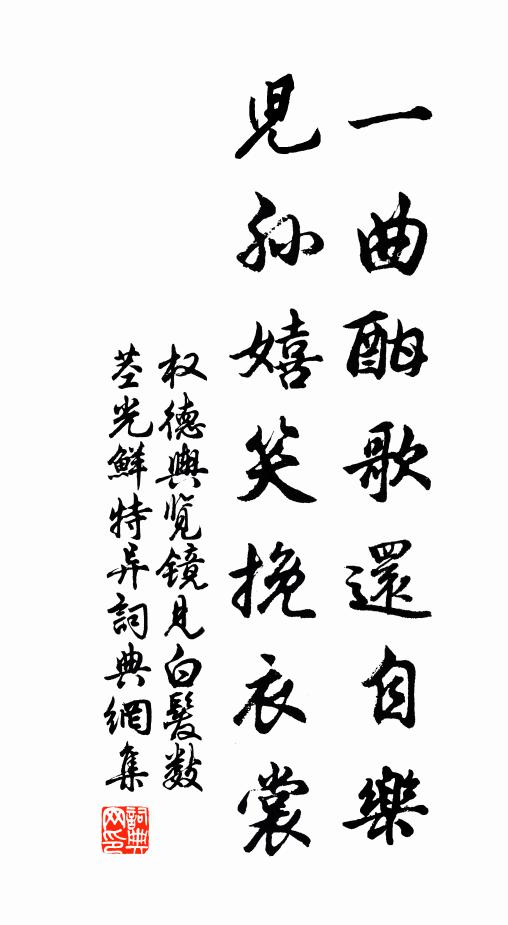 一曲酣歌還自樂
兒孫嬉笑挽衣裳
权德輿览镜見白髮数
茎光鮮特异詞典網集
詞典网印